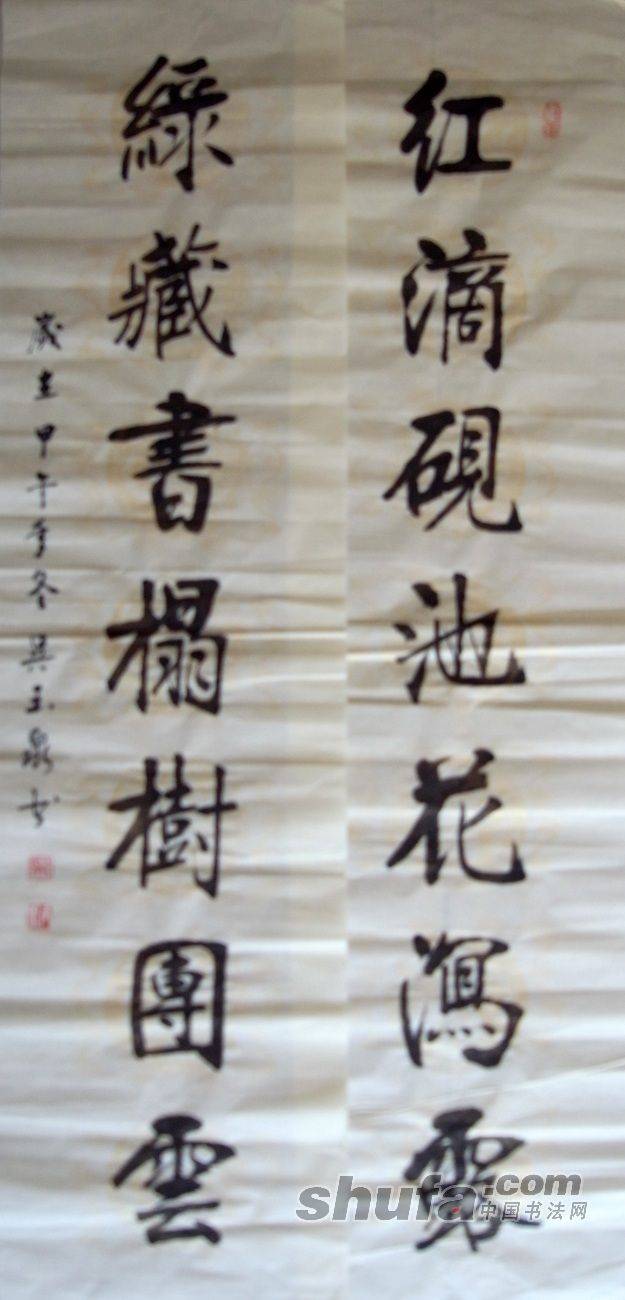 红滴硯池花瀉露
綠藏書榻樹團雲
歲在甲午季冬吳玉泉书
shufa.com
中国书法网